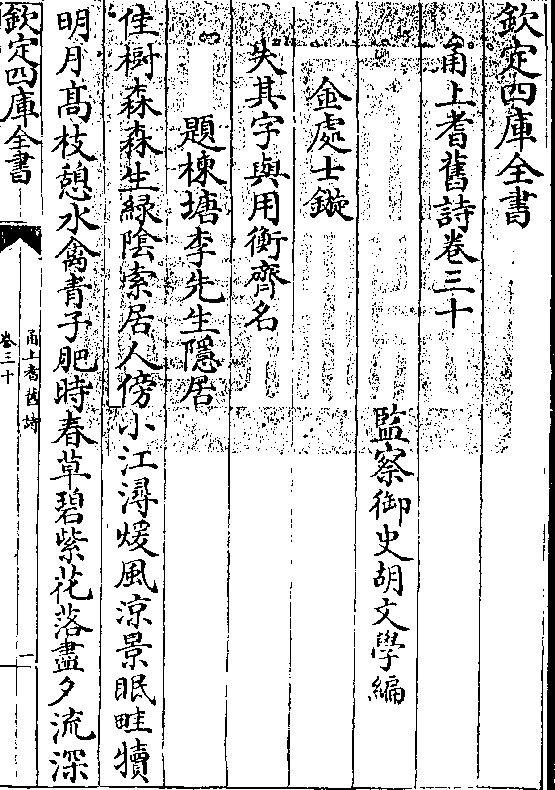 欽定四庫全書
甬上耆舊詩卷三十
監察御史胡文學編
金處士鏇
失其字與用衡齊名
題楝塘李先生隱居
佳樹森森生緑陰索居人傍小江潯煖風凉景眠畦犢
明月髙枝憩水禽青子肥時春草碧紫花落盡夕流深
欽定四庫全書
甬上耆舊詩
卷三十
一